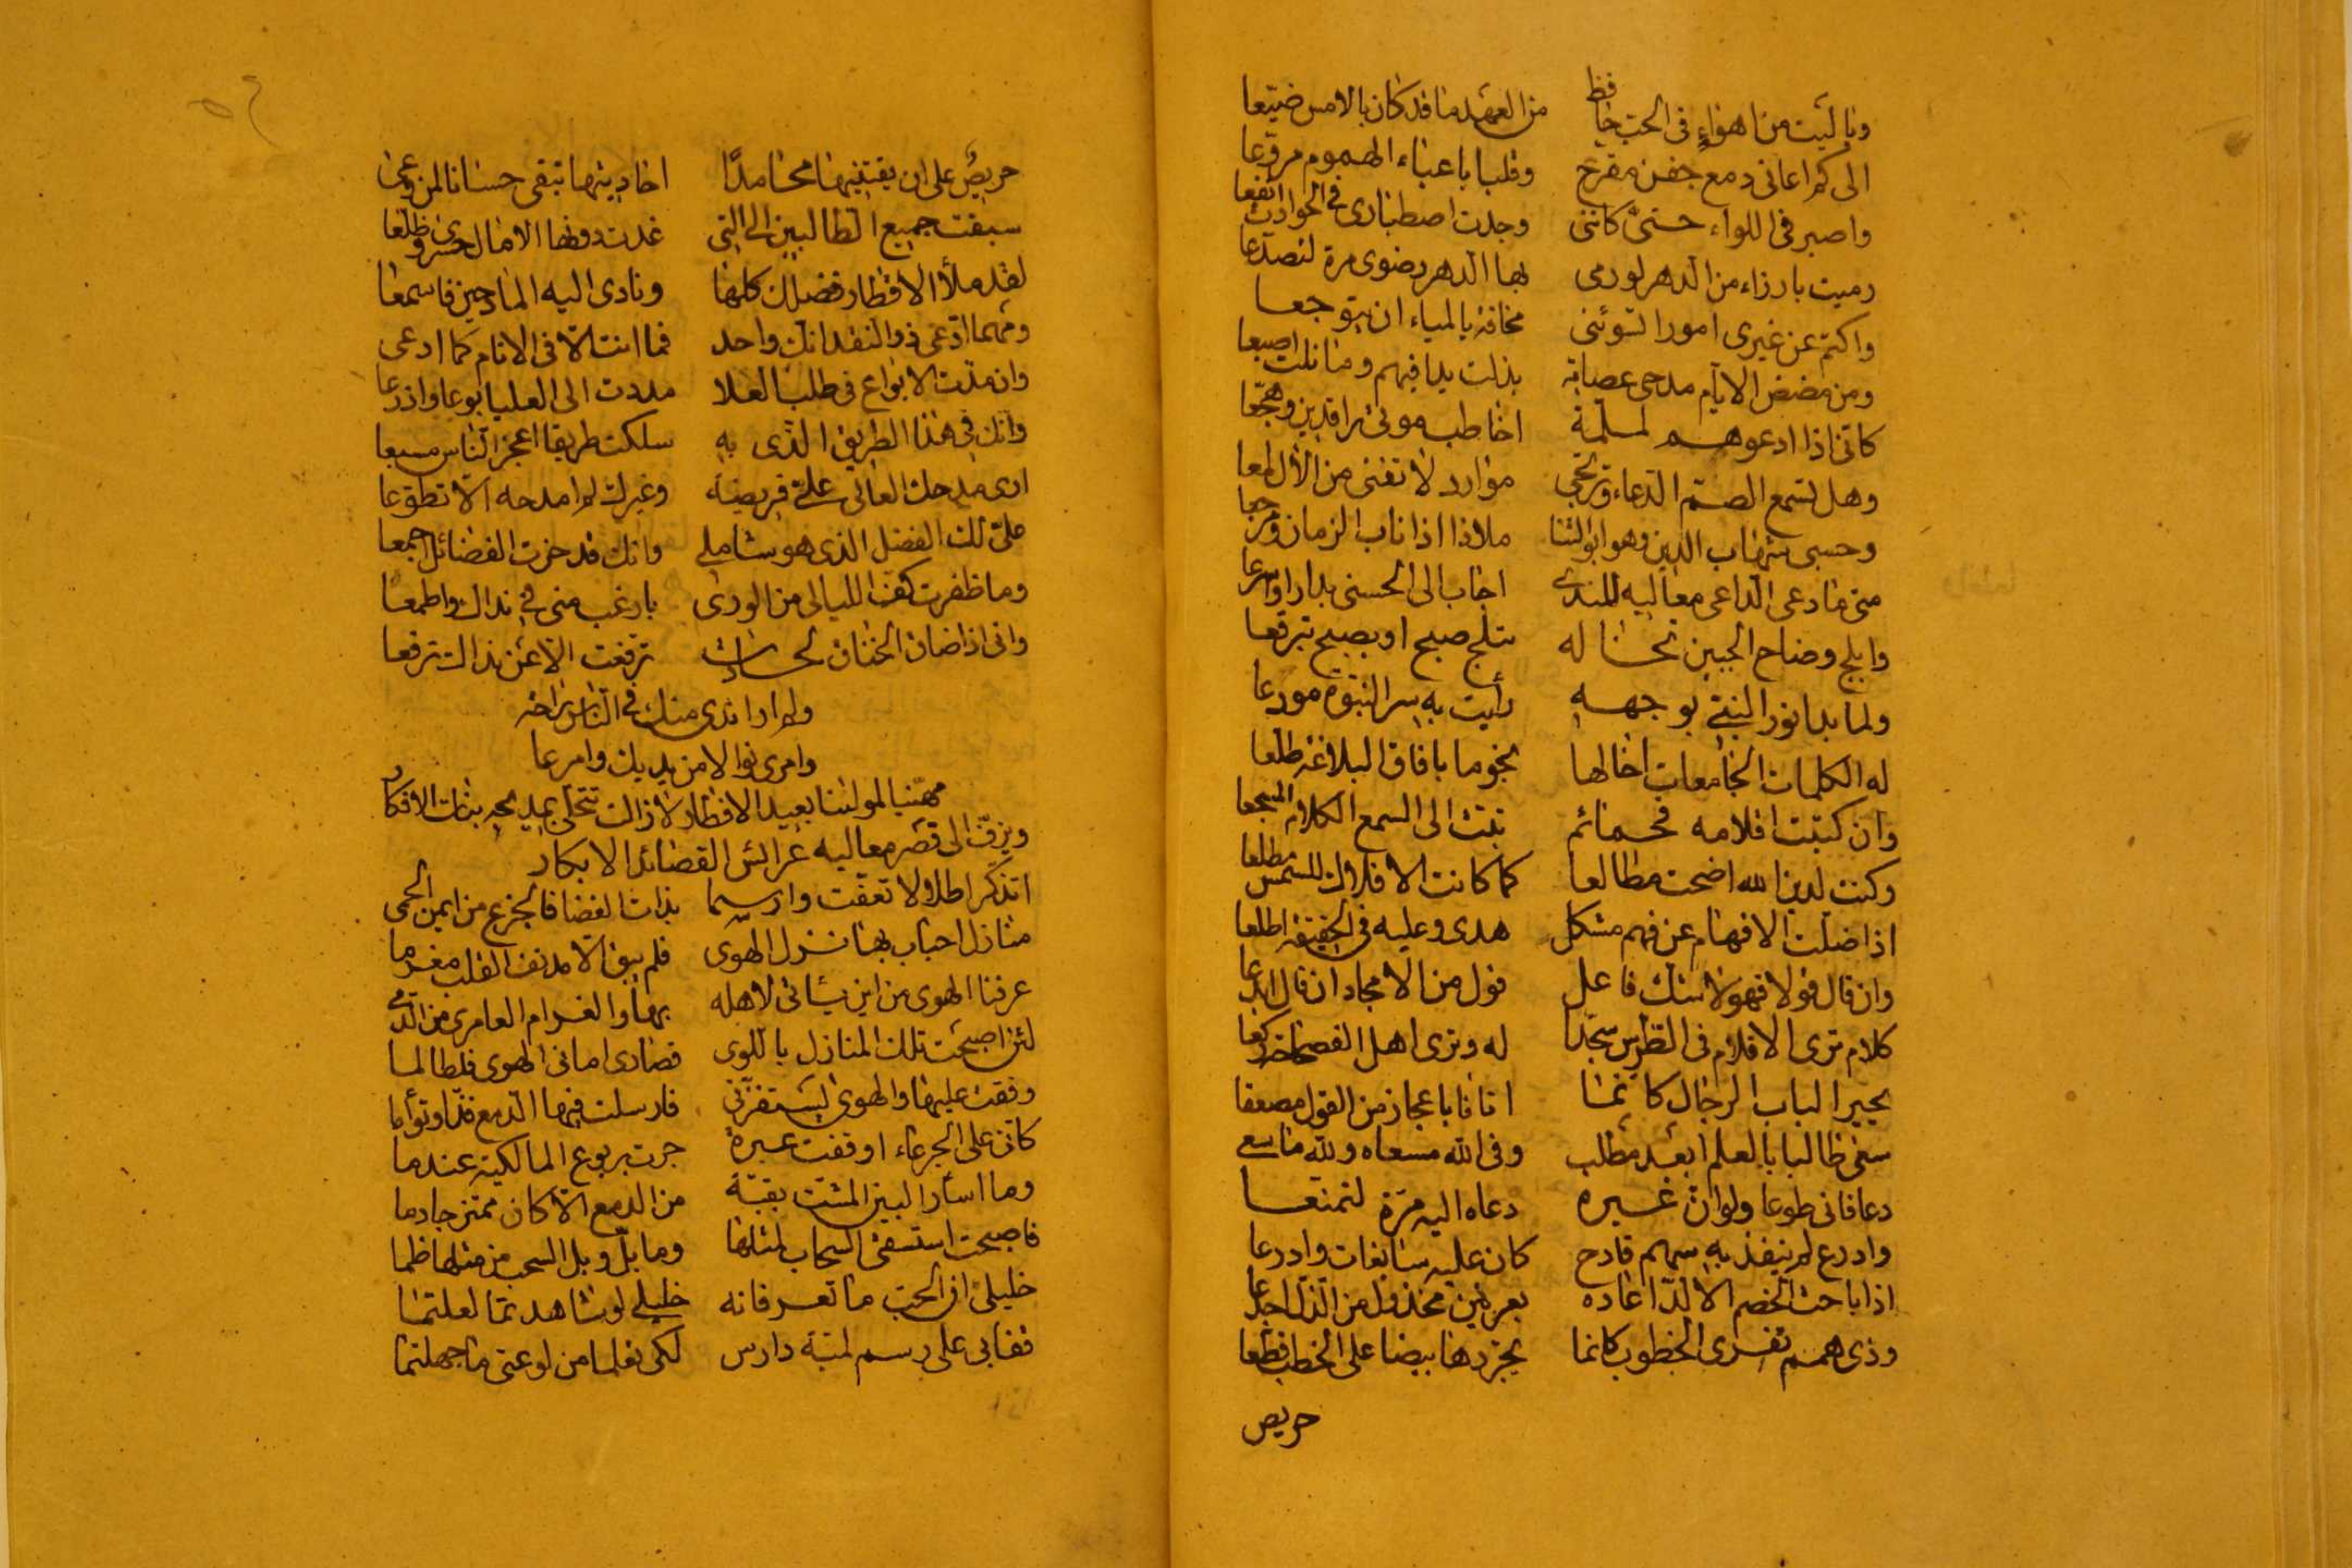 وياليت من اهواه في الحب حافظ من العهد ما قد كان بالامس ضيعا
الى كم اعاني دمع جفن مقرح وقلبا باعباء الهموم مروعا
واصبر في اللواء حتى كانني وجدت اصطباري في الحوادث انفعا
رميت بارزاء من الدهر لو رمى بها الدهر رضوى مرة لتصدعا
واكتم عن غيري امورا تسوئني مخافة بالمياء ان يتوجعا
ومن مضض الايام مدحي عصابة بذلت يدا فيهم وما نلت اصبعا
كاني اذا ادعوهم لملمة اخاطب موتى راقدين وهجعا
وهل تسمع الصم الدعاء وترتجي موارد لا تغني من الآل لمعا
وحسبي شهاب الدين وهو ابو الثنا ملاذا اذا ناب الزمان ومرجعا
متى ما دعى الداعي معاليه للندى اجاب الى الحسنى بدارا واسرعا
وابلج وضاح الجبين تخاله تبلج صبح او بصبح تبرقعا
ولما بدا نور النبي بوجهه رأيت به سر النبوة مودعا
له الكلمات الجامعات اخالها نجوما بافاق البلاغة طلعا
وان كتبت اقلامه فحمائم تبث الى السمع الكلام المسجعا
وكنت لدين الله اضحت مطالعا كما كانت الافلاك للشمس مطلعا
اذا ضلت الافهام عن فهم مشكل هدى وعليه في الحقيقة اطلعا
وان قال قولا فهو لا شك فاعل قول من الامجاد ان قال ابدعا
كلام ترى الاقلام في الطرس سجدا له وترى اهل الفصاحة ركعا
يحير الباب الرجال كانما اتانا باعجاز من القول مصقعا
سعى طالبا بالعلم ابعد مطلب وفي الله مسعاه ولله ما سعى
دعا فاتى طوعا ولو ان غيره دعاه اليه مرة لتمنعا
وادرع لم ينفذ به سهم قادح كان عليه سابغات وادرعا
اذا باحث الخصم الالد اعاده بعرنين مخذول من الذل اجدعا
وذي همم تفري الخطوب كانما يجردها بيضا على الخطب قطعا
حريص
حريص على ان يقتنيها محامدا احاديثها تبقى حسانا لمن وعى
سبقت جميع الطالبين الى التي غدت دونها الامال حسرى وظلعا
لقد ملأ الاقطار فضلك كلها ونادى اليه المادحين فاسمعا
ومهما ادعى ذو النقد انك واحد فما انت الا في الانام كما ادعى
وان مدت الابواع في طلب العلا مددت الى العليا ابوعا واذرعا
وانك في هذا الطريق الذي به سلكت طريقا اعجز الناس مسبعا
ارى مدحك العالي علي فريضة وغيرك لم امدحه الا تطوعا
علي لك الفضل الذي هو شاملي وانك قد حزت الفضائل اجمعا
وما ظفرت كف الليالي من الورى بارغب مني في نداك واطمعا
واني اذا ضاق الخناق لحادث ترفعت الا عن نداك ترفعا
ولم ار اندى منك في الناس راحة
وامرى نوالا من يديك وامرعا
مهنيا لمولنا بعيد الافطار لا زالت تتحلى بمديحه بنات الافكار
ويزف الى قصر معاليه عرائس القصائد الابكار
اتذكر اطلالا تعفت وارسما بذات الغضا فالجزع من ايمن الحمى
منازل احباب بها نزل الهوى فلم يبق الا مدنف القلب مغرما
عرفنا الهوى من اين يأتي لاهله بها والغرام العامري من الدمى
لئن اصبحت تلك المنازل باللوى قصارى اماني الهوى فلطالما
وقفت عليها والهوى يستفزني فارسلت فيها الدمع فذا وتوأما
كاني على الجرعاء اوقفت عبرة جرت بربوع المالكية عندما
وما اسأر البين المشتت بقية من الدمع الا كان ممتزجا دما
فاصبحت استسقي السحاب لمثلها وما بل وبل السحب من مثلها ظما
خليلي ان الحب ما تعرفانه خليلي لو شاهدتما لعلمتما
قفا بي على رسم لمية دارس لكي تعلما من لوعتي ما جهلتما